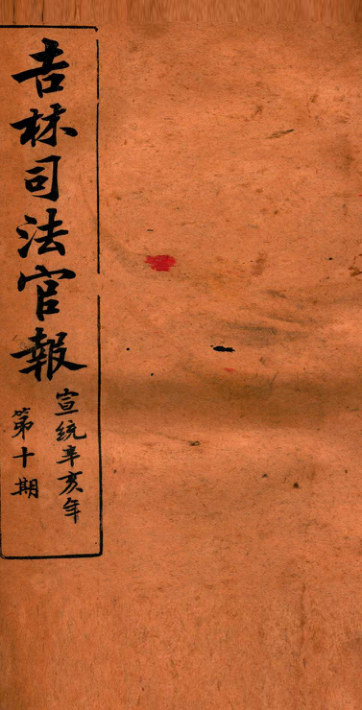 吉林司法官報
宣統辛亥年
第十期